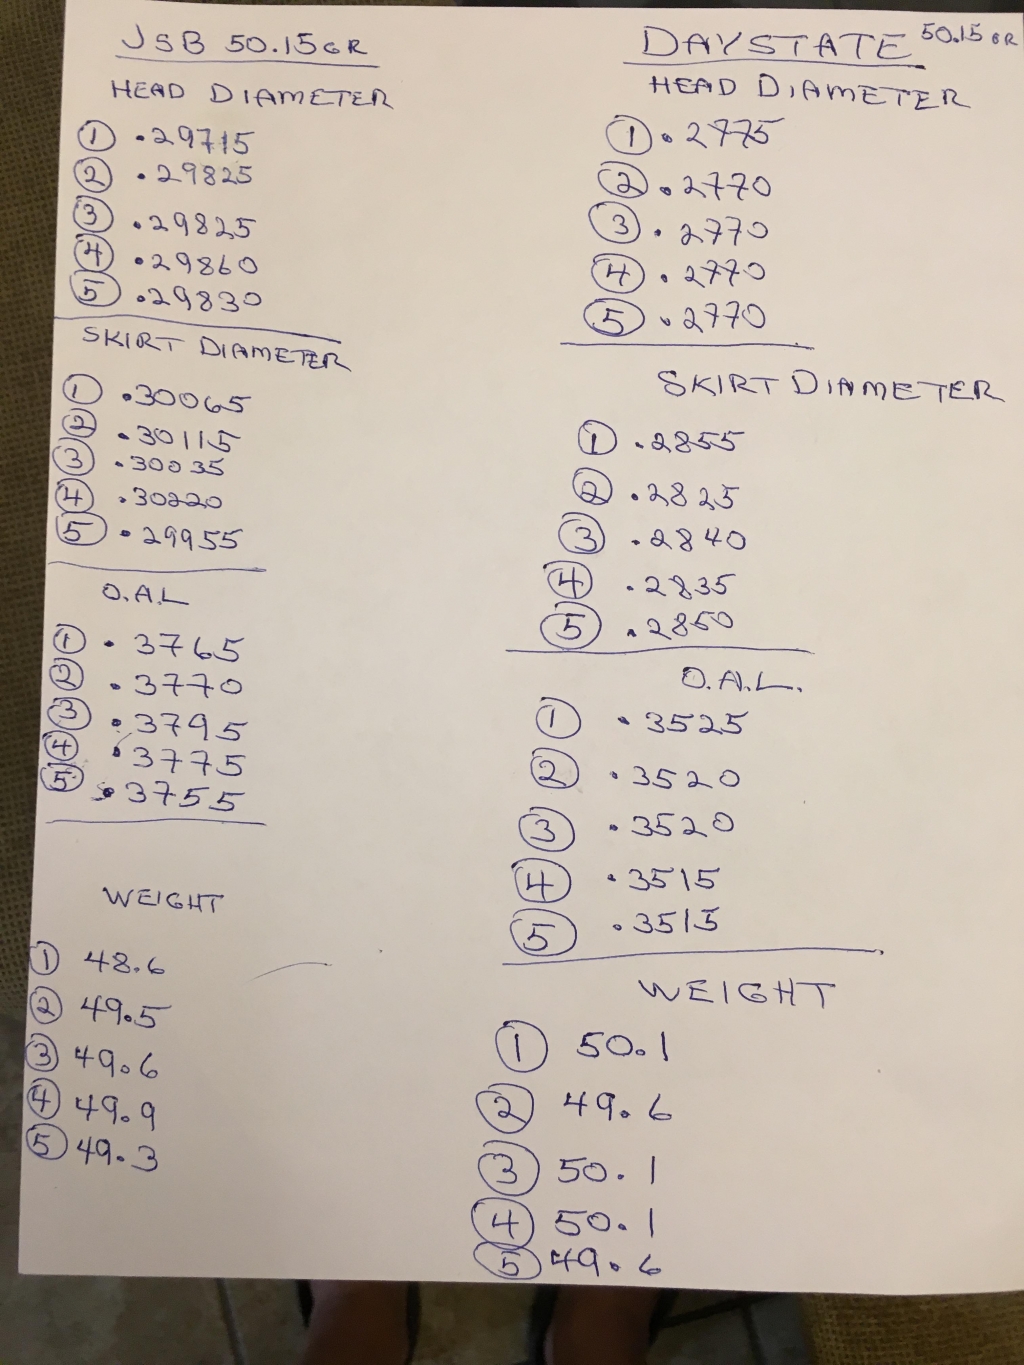 JSB 50.15GR
HEAD DIAMETER
1 .29715
2 .29825
3 .29825
4 .29860
5 .29830
SKIRT DIAMETER
1 .30065
2 .30115
3 .30035
4 .30220
5 .29955
O.A.L
1 .3765
2 .3770
3 .3795
4 .3775
5 .3755
WEIGHT
1 48.6
2 49.5
3 49.6
4 49.9
5 49.3
DAYSTATE 50.15 GR
HEAD DIAMETER
1 .2775
2 .2770
3 .2770
4 .2770
5 .2770
SKIRT DIAMETER
1 .2855
2 .2825
3 .2840
4 .2835
5 .2850
O.A.L.
1 .3525
2 .3520
3 .3520
4 .3515
5 .3515
WEIGHT
1 50.1
2 49.6
3 50.1
4 50.1
5 49.6